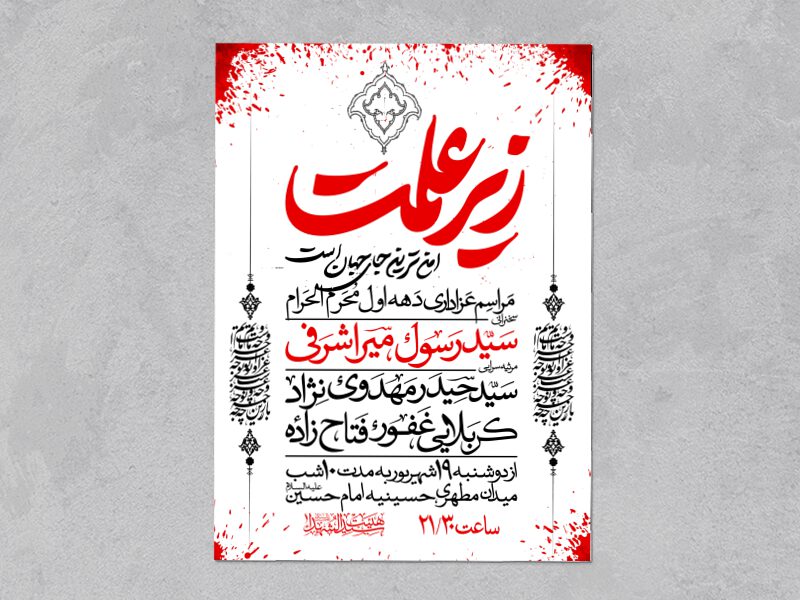 زیر علمت
امن ترین جای جهان است
مراسم عزاداری دهه اول محرم الحرام
سخنرانی
سید رسول میراشرفی
مرثیه سرایی
سید حیدر مهدوی نژاد
کربلایی غفور فتاح زاده
از دوشنبه ۱۹ شهریور به مدت ۱۰ شب
میدان مطهری حسینیه امام حسین علیه السلام
ساعت ۲۱/۳۰
هیئت سیدالشهدا